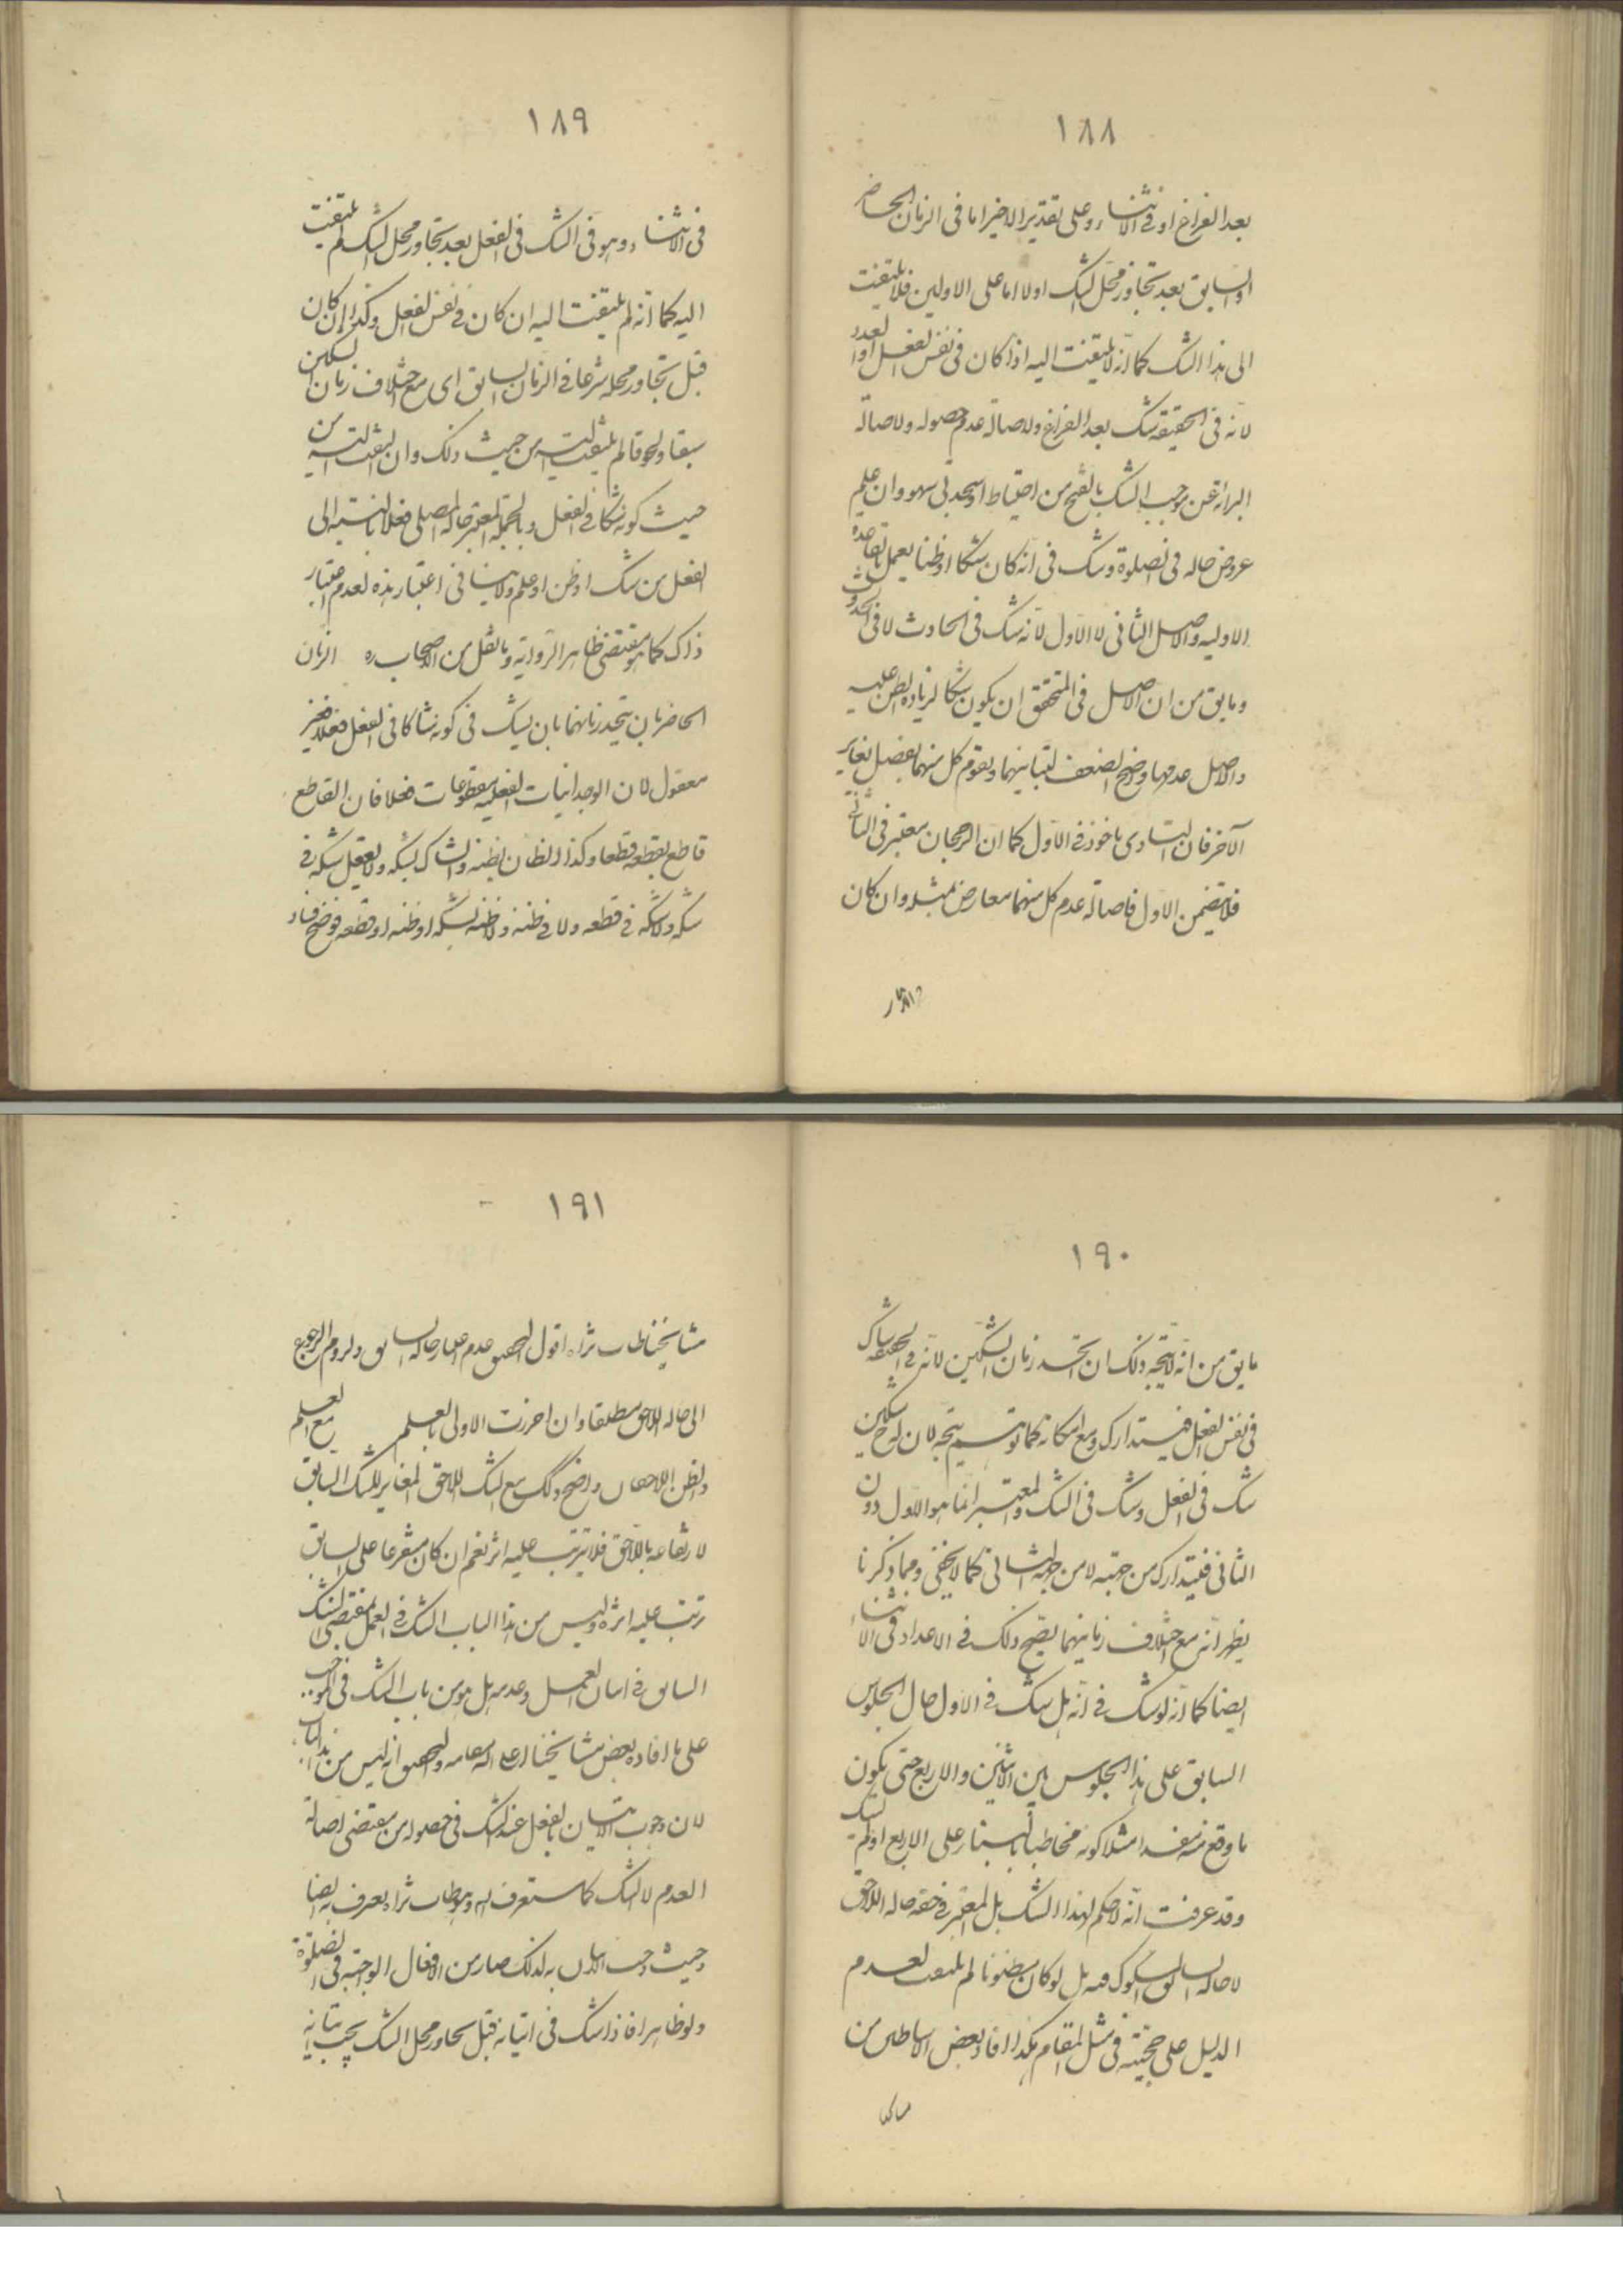 ١٨٨
بعد الفراغ او فی الاثناء وعلی تقدیر الاخیر اما فی الزمان الحاضر
او السابق بعد تجاوز محل الشک اولا اما علی الاولین فلا یلتفت
الی هذا الشک کما انه لا یلتفت الیه اذا کان فی نفس الفعل او العدد
لانه فی الحقیقة شک بعد الفراغ ولاصالة عدم حصوله ولاصالة
البرائة عن موجب الشک بالفتح من احتیاط او سجدتی سهو وان علم
عروض حالة فی الصلوة وشک فی انه کان شکا او ظنا یعمل بقاعدة
الاولیة والاصل الثانی لا الاول لانه شک فی الحادث لا فی الحدوث
وما یق من ان الاصل فی المتحقق ان یکون شکا لزیادة الظن علیه
والاصل عدمها واضح الضعف لتباینهما وتقوم کل منهما بفصل یغایر
الآخر فان التساوی ماخوذ فی الاول کما ان الرجحان معتبر فی الثانی
فلا یتضمن الاول فاصالة عدم کل منهما معارض بمثله وان کان
١٨٩
فی الاثناء وهو فی الشک فی الفعل بعد تجاوز محل الشک لم یلتفت
الیه کما انه لم یلتفت الیه ان کان فی نفس الفعل وکذا ان کان
قبل تجاوز محله شرعا فی الزمان السابق ای مع اختلاف زمان الشکین
سبقا ولحوقا لم یلتفت الیه من حیث ذلک وان التفت الیه من
حیث کونه شکا فی الفعل وبالجملة المعتبر حالة المصلی فعلا بالنسبة الی
الفعل من شک او ظن او علم ولا ینافی اعتبار هذه لعدم اعتبار
ذاک کما هو مقتضی ظاهر الروایة وما نقل من الاصحاب ره الزمان
الحاضر بان یتحد زمانهما بان یشک فی کونه شاکا فی الفعل فعلا فغیر
معقول لان الوجدانیات الفعلیة مقطوعات فعلا فان القاطع
قاطع بقطعه قطعا وکذا الظان بظنه والشاک بشکه ولا یعقل شکه فی
شکه ولا شکه فی قطعه ولا فی ظنه ولا ظنه بشکه او ظنه او قطعه فوضح فساد
١٩٠
ما یق من انه لا یتجه ذلک ان اتحد زمان الشکین لانه فی الحقیقة شاک
فی نفس الفعل فیستدارک ومع امکانه کما توهم یتجه لان له ح شکین
شک فی الفعل وشک فی الشک والمعتبر انما هو الاول دون
الثانی فیتدارک من جهته لا من جهة الثانی کما لا یخفی ومما ذکرنا
یظهر انه مع اختلاف زمانیهما یصح ذلک فی الاعداد فی الاثناء
ایضا کما انه لو شک فی انه هل شک فی الاول حال الجلوس
السابق علی هذا الجلوس بین الاثنین والاربع حتی یکون
ما وقع منه مفسدا مثلا کونه مخاطبا بالبناء علی الاربع او لم یشک
وقد عرفت انه لا حکم لهذا الشک بل المعتبر فی حقه حالة اللاحق
لا حالة السابق المشکوک فیه بل لو کان مظنونا لم یلتفت لعدم
الدلیل علی حجیته فی مثل المقام هکذا افاد بعض الاساطین من
مشا
١٩١
مشایخنا طاب ثراه اقول التحقیق عدم اعتبار حالة السابق ولزوم الرجوع
الی حالة اللاحق مطلقا وان احرزت الاولی بالعلم مع العلم
والظن اللاحقان واضح وکک مع الشک اللاحق المغایر للشک السابق
لارتفاعه باللاحق فلا یترتب علیه اثر نعم ان کان متفرعا علی السابق
ترتب علیه اثره ولیس من هذا الباب الشک فی العمل بمقتضی الشک
السابق فی اتیان العمل وعدمه بل هو من باب الشک فی الموجب
علی ما افاده بعض مشایخنا اعلی الله مقامه والتحقیق انه لیس من هذا الباب
لان وجوب الاتیان بالفعل عند الشک فی حصوله من مقتضی اصالة
العدم لا الشک کما ستعرف له وهو طاب ثراه یعرف به ایضا
وحیث وجب الاتیان به لذلک صار من الافعال الواجبة فی الصلوة
ولو ظاهرا فاذا شک فی اتیانه قبل تجاوز محل الشک یجب اتیانه